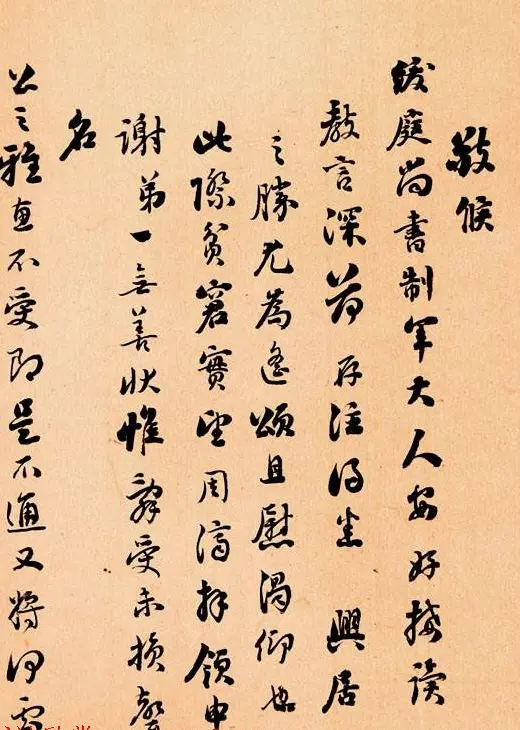 敬候
緩庭尚書制軍大人安好接讀
教言深荷存注得悉 興居
之勝尤為遙頌且慰渴仰也
此際貧窘實望周濟拜領申
謝弟一無善狀惟辭受未損聲
名
公之雅直不受即是不通又將何